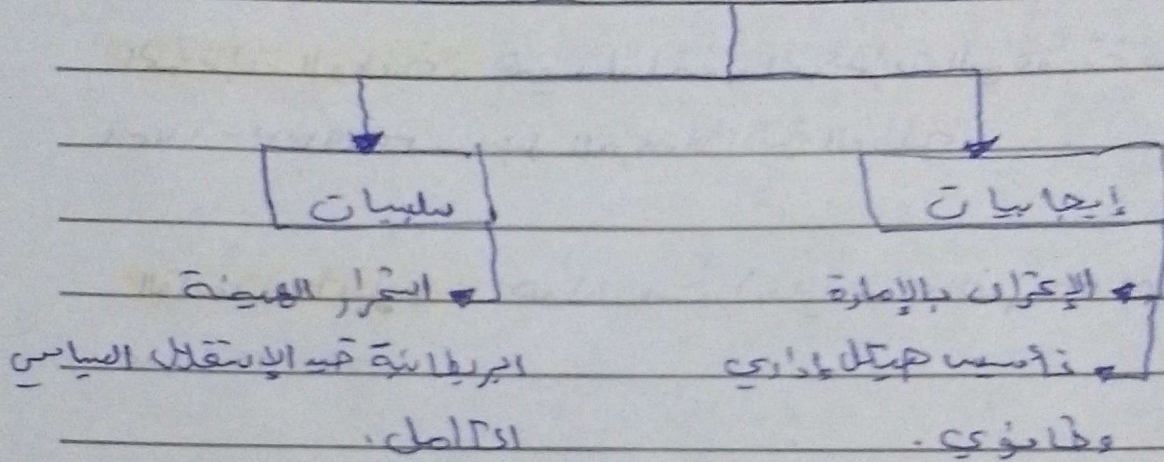 إيجابيات
الإعتراف بالإمارة
تأسيس هيكل إداري
وقانوني.
سلبيات
استمرار الهيمنة
البريطانية قيد الإستقلال السياسي
الكامل.